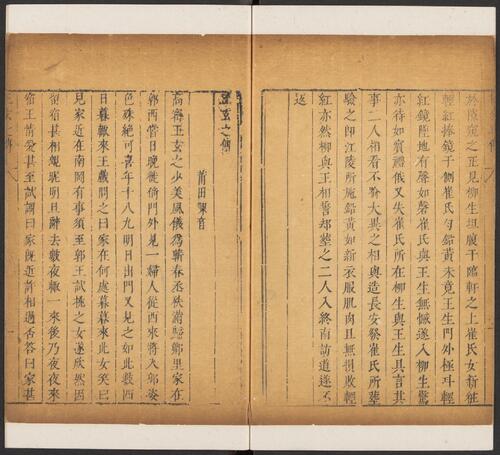 於隙窺之正見柳生坦腹于臨軒之上崔氏女新粧
輕紅捧鏡于側崔氏勻鉛黃未竟王生門外極叫輕
紅鏡墜地有聲如磬崔氏與王生無憾遂入柳生驚
亦待如賓禮俄又失崔氏所在柳生與王生具言其
事二人相看不喻大異之相與造長安發崔氏所葬
驗之即江陵所施鉛黃如新衣服肌肉且無損敗輕
紅亦然柳與王相誓却葬之二人入終南訪道遂不
返
王玄之傳
莆田陳官
高密王玄之少美風儀為蘄春丞秩滿歸鄉里家在
郭西嘗日晚徙倚門外見一婦人從西來將入郭姿
色殊絕可喜年十八九明日出門又見之如此數四
日暮輒來王戲問之曰家在何處暮暮來此女笑曰
兒家近在南岡有事須至郭王試挑之女遂欣然因
留宿甚相親昵明旦辭去數夜輒一來後乃夜夜來
宿王情愛甚至試謂曰家既近許相過否答曰家甚